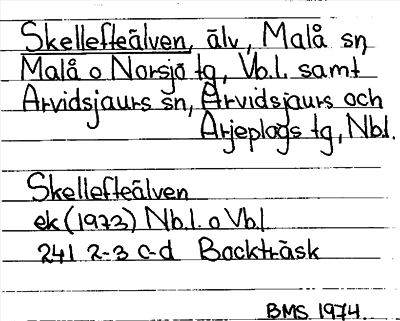 Skellefteälven, älv, Malå sn,
Malå o Norsjö tg, Vb.l. samt
Arvidsjaurs sn, Arvidsjaurs och
Arjeplogs tg, Nb.l.
Skellefteälven
ek (1973) Nb.l. o Vb.l
241 2-3 c-d Backträsk
BMS 1974.